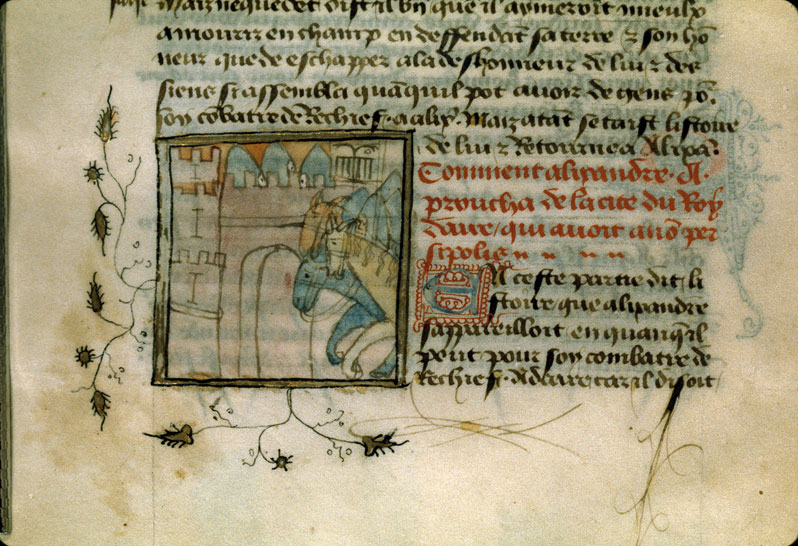 Mais nequedet dist il bn que il aymeroit mieulx
a mourir en champ en deffendāt sa terre ⁊ son hō
neur que de eschapper a la deshonneur de lui ⁊ des
siens si assembla quāquil pot auoir de gens po᷑
soy cōbatre de Rechief a alix̄. Mais atāt se taist listoire
de lui ⁊ Retourne a Alixā.
Comment alixandre . A .
proucha de la cite du Roy
daire , qui auoit anō per
sipolis
En ceste partie dit li
stoire que alixandre
sappareilloit en quanq̄il
pout pour soy combatre de
Rechief . A daire car il disoit